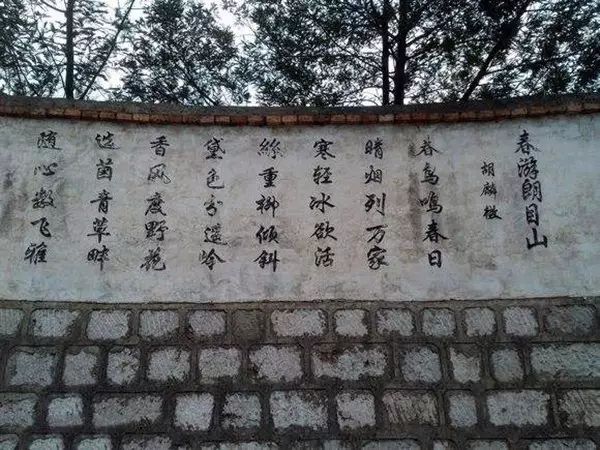 春游朗目山
胡麟徵
谷鸟鸣春日
晴烟列万家
寒轻冰欲活
絲重柳倾斜
黛色分遥岭
香风度野花
造茵青草畔
随心数飞雅